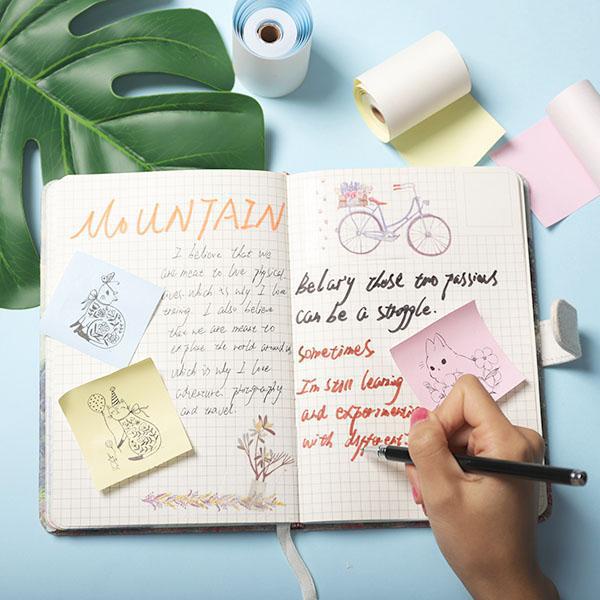 MOUNTAIN
I believe that we
are meant to live physical
lives, which is why I love
training. I also believe
that we are meant to
explore the world around us
which is why I love
adventure, photography
and travel.
Belary those two passions
can be a stroggle.
Sometimes
I'm still learning
and experimenting
with different